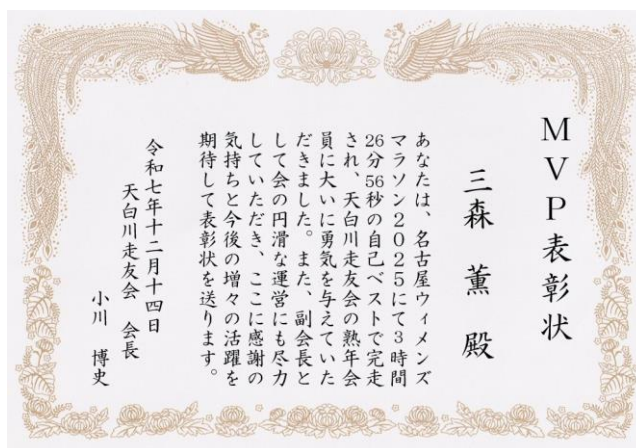 MVP表彰状
三森 薫 殿
あなたは、名古屋ウィメンズ
マラソン2025にて3時間
26分56秒の自己ベストで完走
され、天白川走友会の熟年会
員に大いに勇気を与えていた
だきました。また、副会長と
して会の円滑な運営にも尽力
していただき、ここに感謝の
気持ちと今後の増々の活躍を
期待して表彰状を送ります。
令和七年十二月十四日
天白川走友会 会長
小川 博史